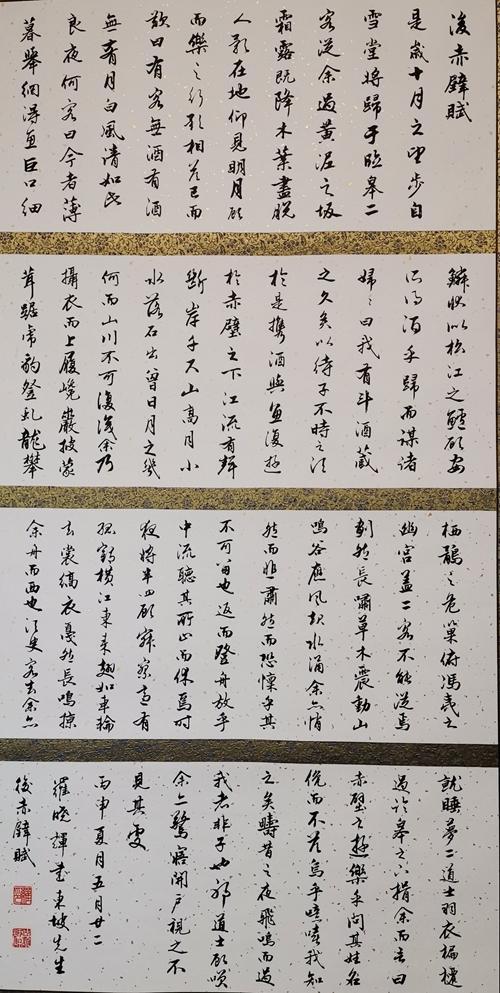 後赤壁賦
是歲十月之望步自
雪堂將歸于臨皋二
客從余過黃泥之坂
霜露既降木葉盡脫
人影在地仰見明月顧
而樂之行歌相答已而
歎曰有客無酒有酒
無肴月白風清如此
良夜何客曰今者薄
暮舉網得魚巨口細
鱗狀似松江之鱸顧安
所得酒乎歸而謀諸
婦婦曰我有斗酒藏
之久矣以待子不時之須
於是攜酒與魚復遊
於赤壁之下江流有聲
斷岸千尺山高月小
水落石出曾日月之幾
何而山川不可復識余乃
攝衣而上履巉巖披蒙
茸踞虎豹登虬龍攀
栖鶻之危巢俯馮夷之
幽宮蓋二客不能從焉
劃然長嘯草木震動山
鳴谷應風起水涌余亦悄
然而悲肅然而恐懍乎其
不可留也返而登舟放乎
中流聽其所止而休焉時
夜將半四顧寂寥適有
孤鶴橫江東來翅如車輪
玄裳縞衣戛然長鳴掠
余舟而西也須臾客去余亦
就睡夢二道士羽衣蹁躚
過臨皋之下揖余而言曰
赤壁之遊樂乎問其姓名
俛而不答烏乎噫嘻我知
之矣疇昔之夜飛鳴而過
我者非子也邪道士顧笑
余亦驚寤開戶視之不
見其處
丙申夏月五月廿二
羅曉輝書東坡先生
後赤壁賦